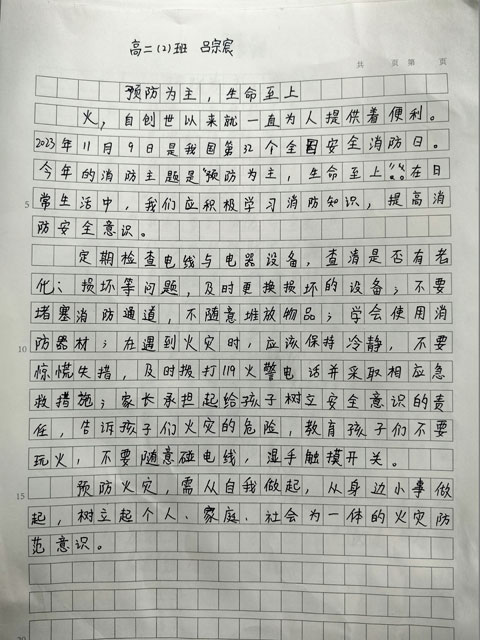 高二(2)班 吕宗宸
共 页 第 页
预防为主，生命至上
火，自创世以来就一直为人提供着便利。
2023年11月9日是我国第32个全国安全消防日。
今年的消防主题是“预防为主，生命至上”。在日
5 常生活中，我们应积极学习消防知识，提高消
防安全意识。
定期检查电线与电器设备，查清是否有老
化；损坏等问题，及时更换损坏的设备；不要
堵塞消防通道，不随意堆放物品；学会使用消
10 防器材；在遇到火灾时，应该保持冷静，不要
惊慌失措，及时拨打119火警电话并采取相应急
救措施；家长承担起给孩子树立安全意识的责
任，告诉孩子们火灾的危险，教育孩子们不要
玩火，不要随意碰电线，湿手触摸开关。
15 预防火灾，需从自我做起，从身边小事做
起，树立起个人、家庭、社会为一体的火灾防
范意识。
20